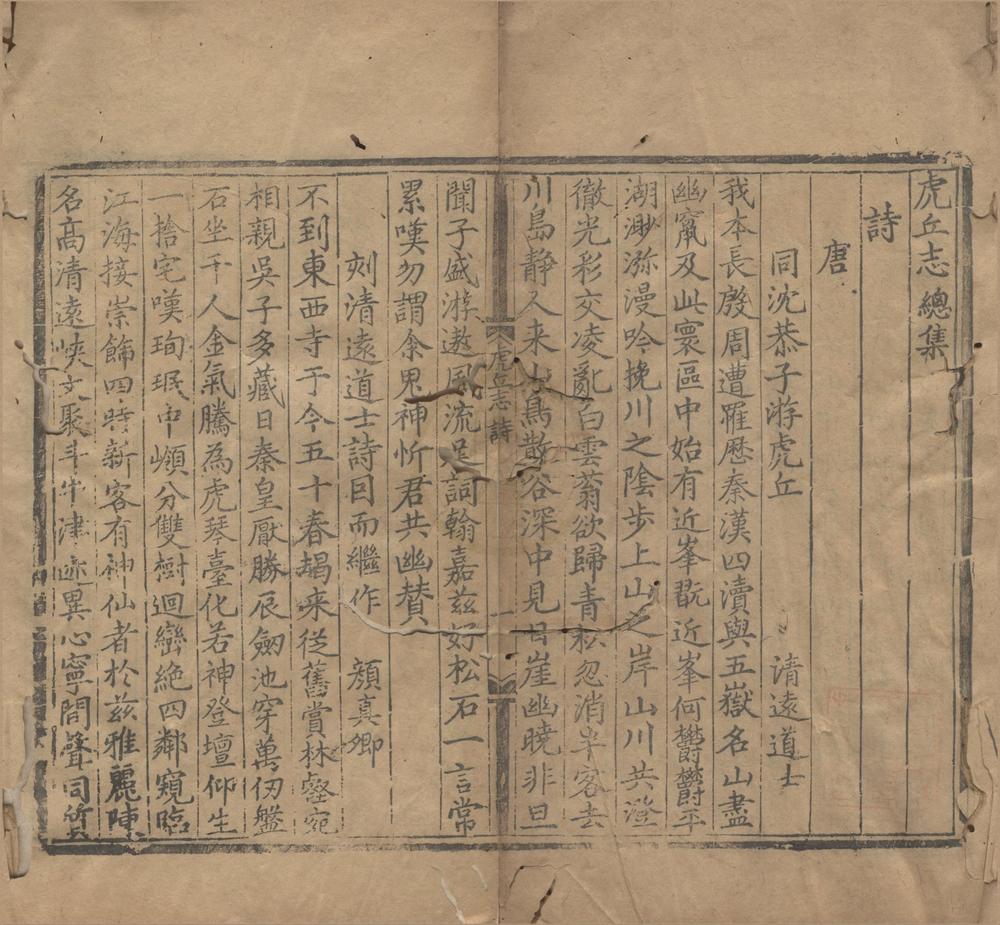 虎丘志總集
詩
唐
同沈恭子游虎丘 清遠道士
我本長殷周遭罹歷秦漢四瀆與五嶽名山盡
幽竄及此寰區中始有近峯翫近峯何欝欝平
湖渺瀰漫吟挽川之陰步上山之岸山川共澄
徹光彩交凌亂白雲蓊欲歸青松忽消半客去
川島靜人来山鳥散谷深中見日崖幽曉非旦
聞子盛游遨風流足詞翰嘉兹好松石一言常
累嘆勿謂余鬼神忻君共幽賛
刻清遠道士詩因而繼作 顔真卿
不到東西寺于今五十春朅来從舊賞林壑宛
相親吳子多藏日秦皇厭勝辰劒池穿萬仞盤
石坐千人金氣騰為虎琴臺化若神登壇仰生
一捨宅嘆珣珉中嶺分雙樹迴巒絶四鄰窺臨
江海接崇飾四時新客有神仙者於兹雅麗陳
名高清遠峽文聚斗牛津迹異心寧間聲同質
虎丘志 詩 一